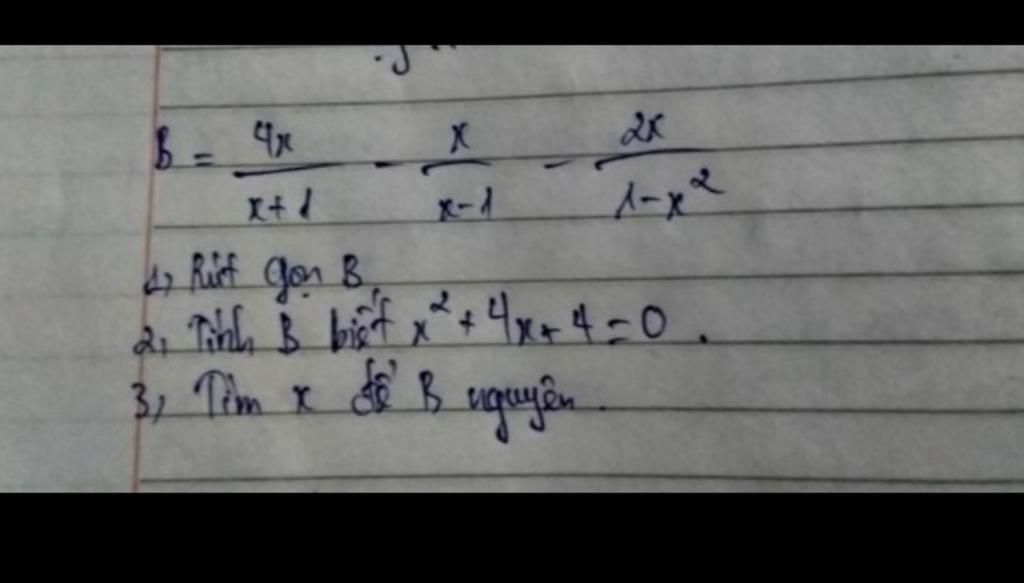 B = 4x/(x+1) - x/(x-1) - 2x/(1-x²)
1, Rút gọn B
2, Tính B biết x² + 4x + 4 = 0.
3, Tìm x để B nguyên.